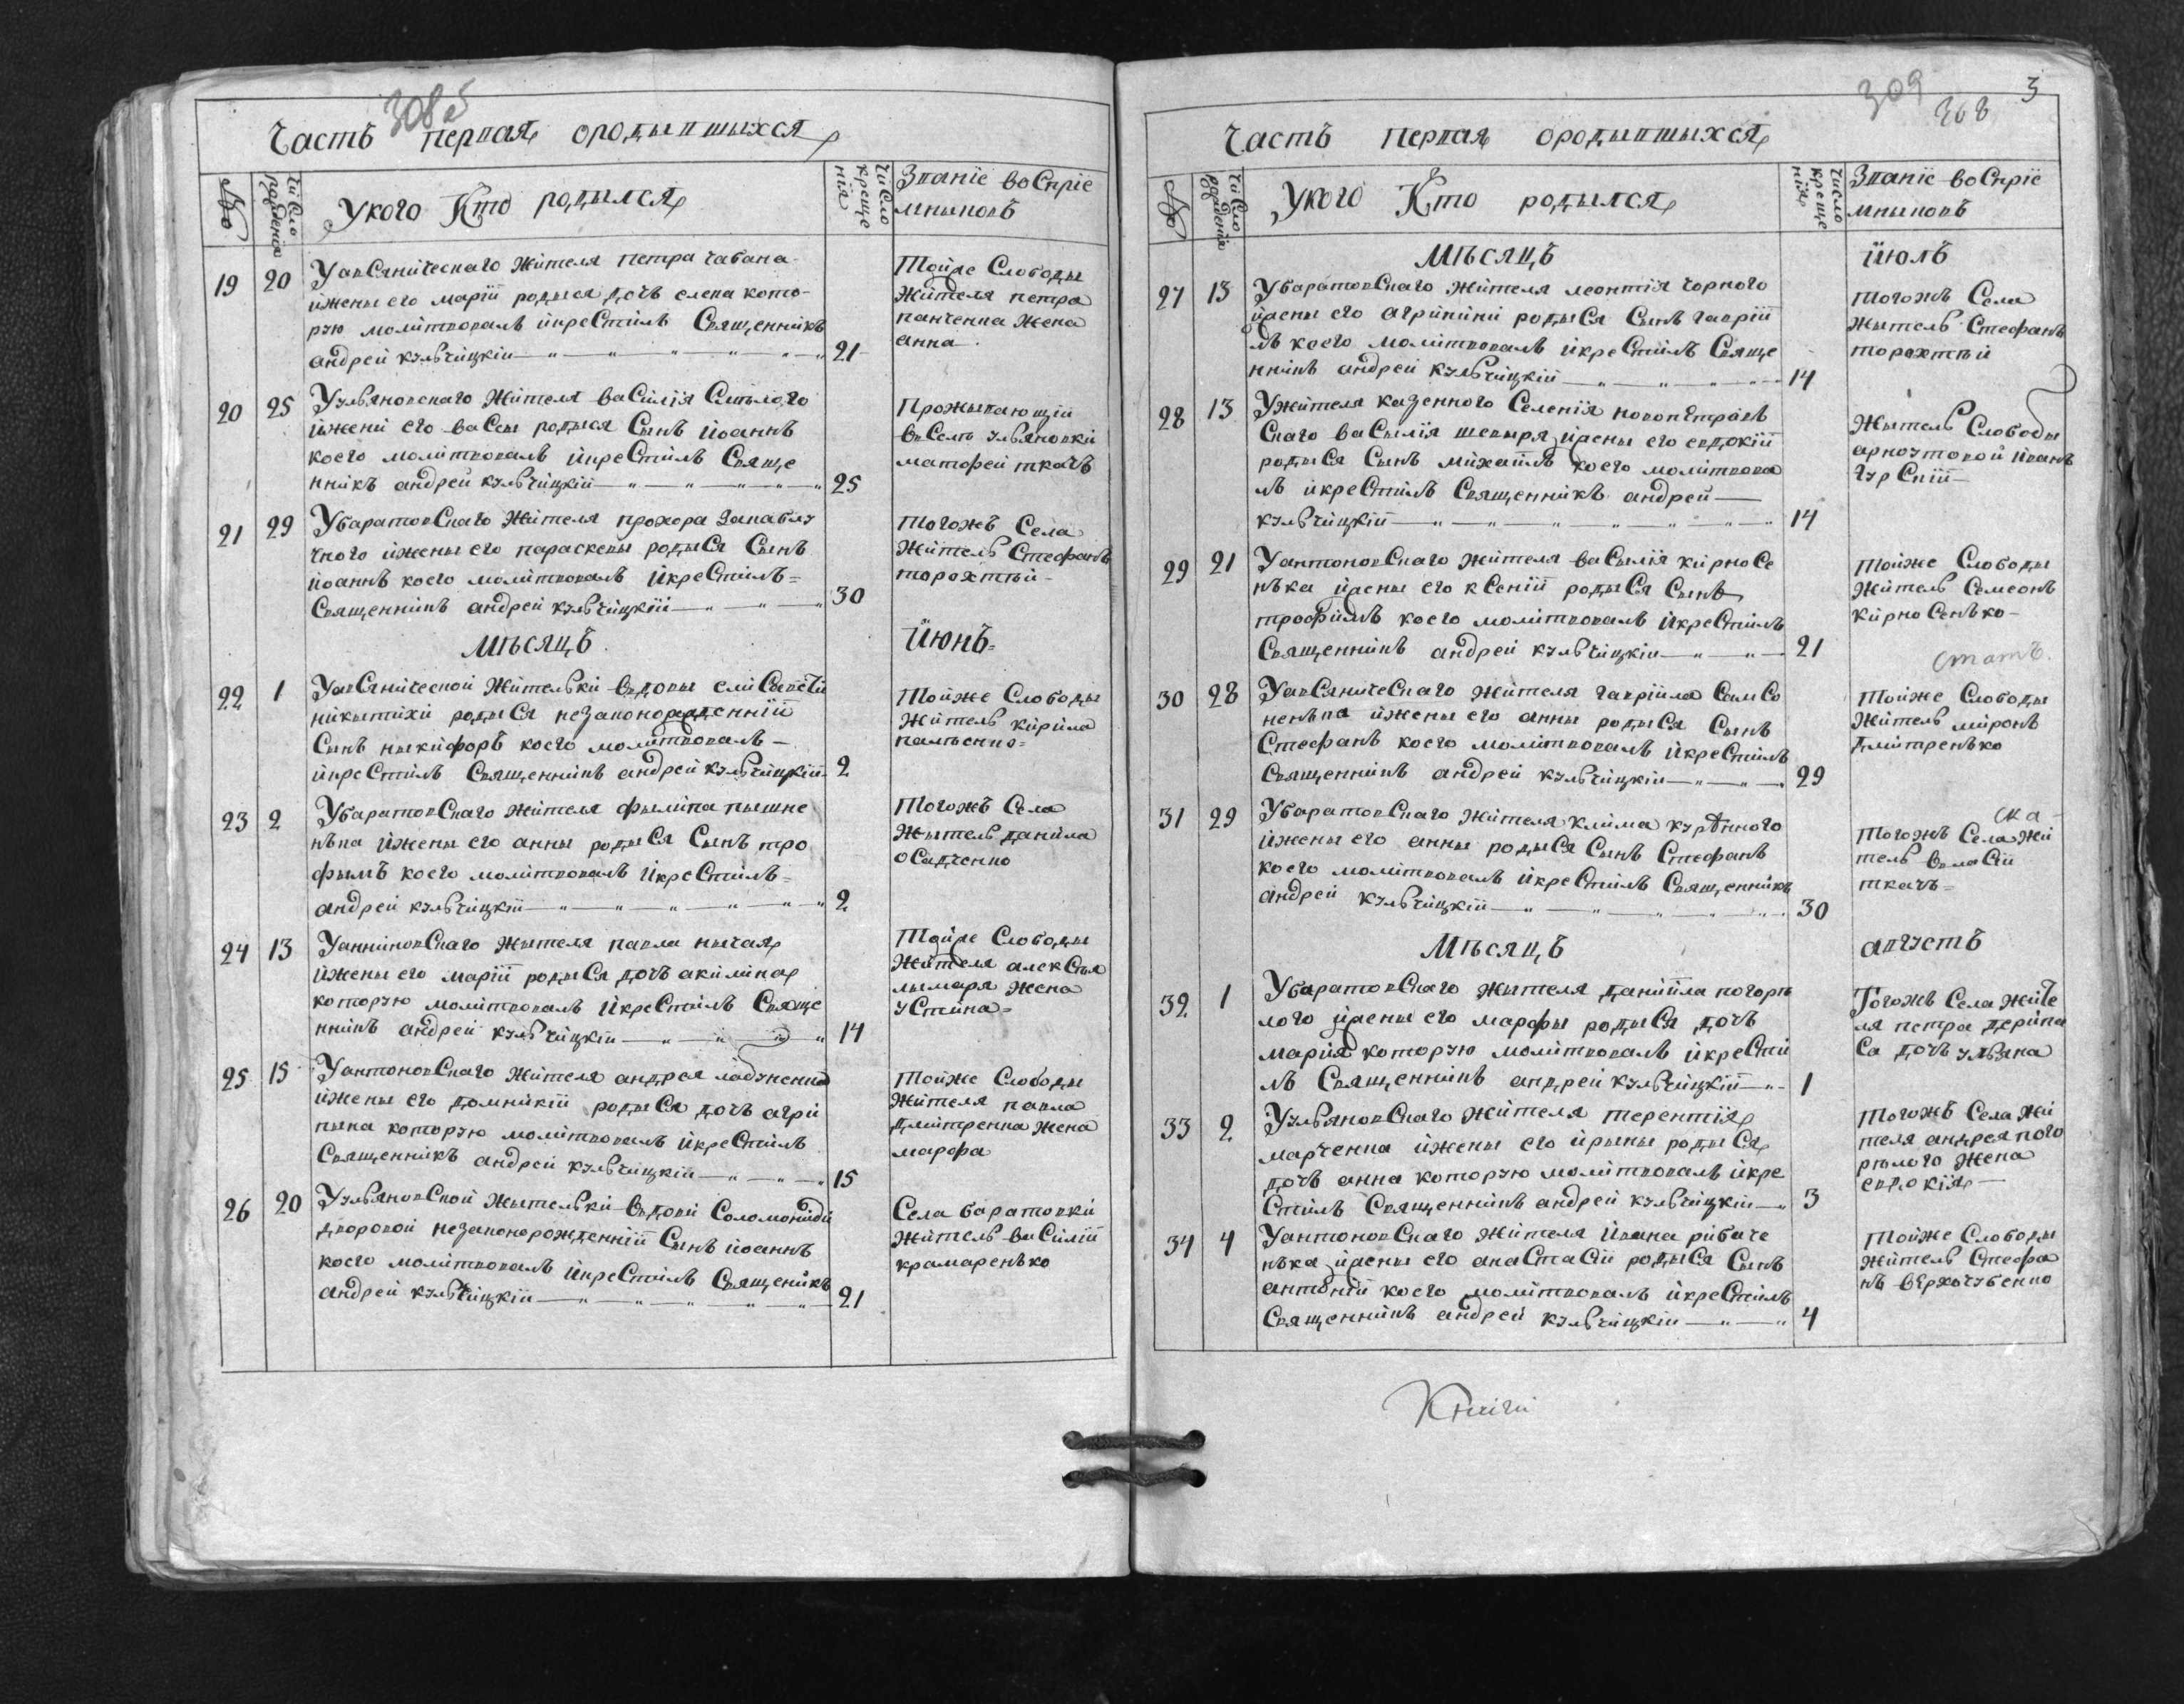 308б
Часть первая ородывшыхся
№ Число рожденія Укого Кто родился Число крещенія Званіе воспріемныковъ
19 20 Уавсяническаго жителя петра чабана
ижены его маріи родыся дочь елена кото-
рую молитвовалъ икрестилъ Священникъ
андрей кульчицкій 21
Тойже Слободы
жителя петра
панченка жена
анна
20 25 Уульяновскаго жителя василія Смылого
ижени его васы родыся Сынъ иоаннъ
коего молитвовалъ икрестилъ Свяще
нникъ андрей кульчицкій 25
Прожывающій
въ Селъ ульяновки
матфей ткачъ
21 29 Убаратовскаго жителя прохора
чного ижены его параскевы родыся Сынъ
иоаннъ коего молитвовалъ икрестилъ=
Священникъ андрей кульчицкій 30
тогожъ Села
житель Стефанъ
торохтый-
мъсяцъ июнь=
22 1 Уавсянической жителькы вдовы
никытихи родыся незаконорожденній
Сынъ никифоръ коего молитвовалъ-
икрестилъ Священникъ андрей кульчицкій 2
Тойже Слободы
житель кирила
23 2 Убаратовскаго жителя филипа пышне
нька ижены его анны родыся Сынъ тро
фымъ коего молитвовалъ икрестилъ=
андрей кульчицкій 2
Тогожъ Села
житель данила
осадченко
24 13 Уанниновскаго жытеля павла нычая
ижены его маріи родыся дочь акилина
которую молитвовалъ икрестилъ Свяще
нникъ андрей кульчицкій 14
Тойже Слободы
жителя алексъя
лымаря жена
устина=
25 15 Уантоновскаго жителя андрея ладуненка
ижены его домникіи родыся дочь агри
пына которую молитвовалъ икрестилъ
Священникъ андрей кульчицкій 15
Тойже Слободы
жителя павла
дмитренка жена
марфа
26 20 Уульяновской жытельки вдовы Соломониды
дворовой незаконорожденній Сынъ иоаннъ
коего молитвовалъ икрестилъ Священикъ
андрей кульчицкій 21
Села баратовки
житель василій
крамаренько
309 308 3
Часть первая ородывшыхся
№ Число рожденія Укого Кто родылся Число крещенія Званіе воспріемныковъ
мъсяцъ июль
27 13 Убаратовскаго жителя леонтія чорного
ижены его агрипини родыся Сынъ гавріи
лъ коего молитвовалъ икрестилъ Свяще
нникъ андрей кульчицкій 14
тогожъ Села
жытель Стефанъ
торохтый
28 13 Ужителя казенного Селенія новопетровъ
скаго василія шевыря ижены его евдокіи
родыся Сынъ михаилъ коего молитвова
лъ икрестилъ Священникъ андрей
кульчицкій 14
жытель Слободы
арноутовой иванъ
гурскій
29 21 Уантоновскаго жителя василія кирносе
нька ижены его ксеніи родыся Сынъ
трофимъ коего молитвовалъ икрестилъ
Священникъ андрей кульчицкій 21
тойже Слободы
житель Семеонъ
кирносенько-
статъ.
30 28 Уавсяническаго жителя гавріила Самсо
ненька ижены его анны родыся Сынъ
Стефанъ коего молитвовалъ икрестилъ
Священникъ андрей кульчицкій 29
тойже Слободы
житель миронъ
дмитренько
31 29 Убаратовскаго жителя клима курънного
ижены его анны родыся Сынъ Стефанъ
коего молитвовалъ икрестилъ Священникъ
андрей кульчицкій 30
ска-
тогожъ Села жи
тель власій
ткачъ=
Мъсяцъ августъ
32 1 Убаратовскаго жытеля даніила погоръ
лого ижены его марфы родыся дочь
марія которую молитвовалъ икрести
лъ Священникъ андрей кульчицкій 1
Тогожъ Села жите
ля петра дерипа
са дочь ульяна
33 2 Уульяновскаго жителя терентія
марченка ижены его ирыны родыся
дочь анна которую молитвовалъ икре
Стилъ Священникъ андрей кульчицкій 3
тогожъ Села жи
теля андрея пого
рълого жена
евдокія
34 4 Уантоновскаго жителя ивана рибаче
нька ижены его анастасіи родыся Сынъ
антоній коего молитвовалъ икрестилъ
Священникъ андрей кульчицкій 4
тойже Слободы
житель Стефа
нъ верхочубенко
Книги